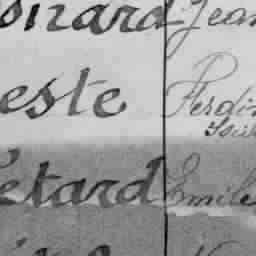 onard Jean
este Ferdin
Louis
etard Emile